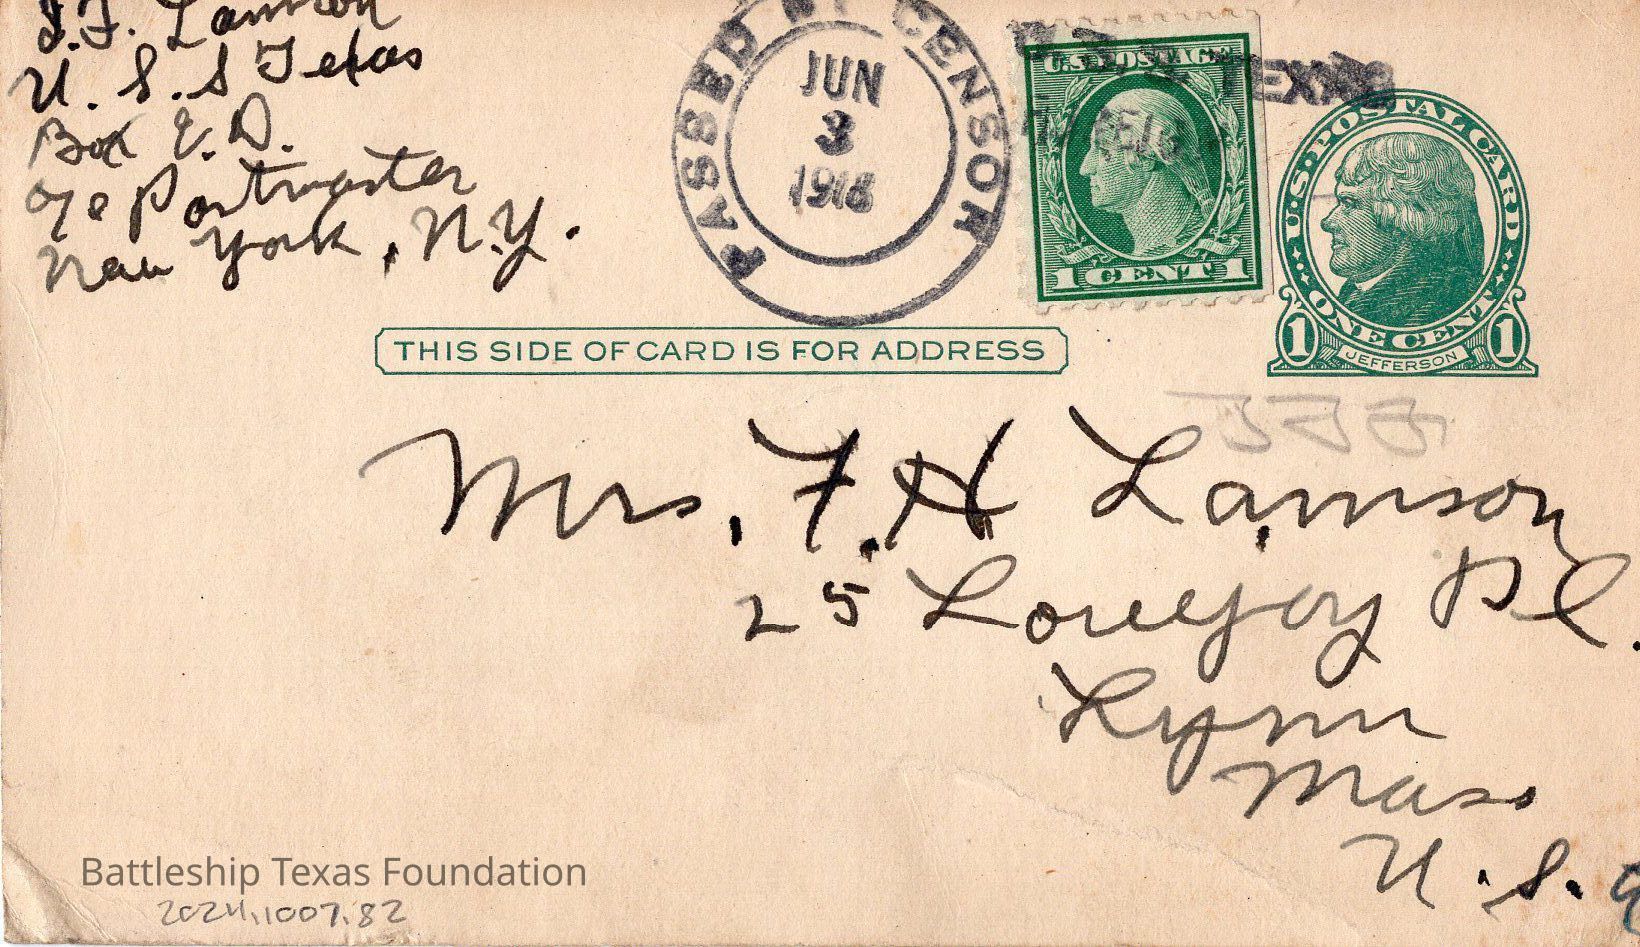 Lamson
U.S.S Texas
Box E.D.
c/o Postmaster
New York, N.Y.
PASSED BY CENSOR
JUN
3
1918
U.S. POSTAGE
1 CENT 1
TEXAS
U.S. POSTAL CARD
ONE CENT
1 JEFFERSON 1
THIS SIDE OF CARD IS FOR ADDRESS
Mrs. F.H Lamson
25 Lovejoy Pl.
Lynn
Mass
U.S.
Battleship Texas Foundation
2024.1007.82